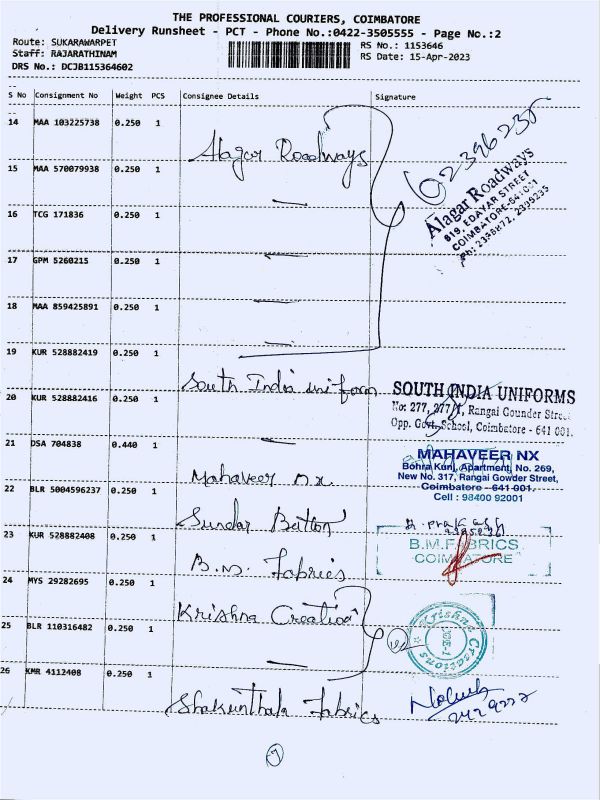 THE PROFESSIONAL COURIERS, COIMBATORE
Delivery Runsheet - PCT - Phone No.:0422-3505555 - Page No.:2
Route: SUKARAWARPET
RS No.: 1153646
Staff: RAJARATHINAM
RS Date: 15-Apr-2023
DRS No.: DCJB115364602
S No Consignment No Weight PCS Consignee Details Signature
14 MAA 103225738 0.250 1 Alagar Roadways
Alagar Roadways
819, EDAYAR STREET
COIMBATORE-641001
15 MAA 570079938 0.250 1
16 TCG 171836 0.250 1
17 GPM 5260215 0.250 1
18 MAA 859425891 0.250 1
19 KUR 528882419 0.250 1
South India uniform
SOUTH INDIA UNIFORMS
No: 277, 277/1, Rangai Gounder Street
Opp. Govt. School, Coimbatore - 641 001.
20 KUR 528882416 0.250 1
21 DSA 704838 0.440 1
Mahaveer nx
MAHAVEER NX
Bohra Kunj, Apartment, No. 269,
New No. 317, Rangai Gowder Street,
Coimbatore - 641 001.
Cell : 98400 92001
22 BLR 5004596237 0.250 1
Sundar Button
23 KUR 528882408 0.250 1
B.M. Fabrics
B.M.FABRICS
COIMBATORE
24 MYS 29282695 0.250 1
Krishna Creation
Krishna Creations
25 BLR 110316482 0.250 1
26 KMR 4112408 0.250 1
Shakunthala Fabrics